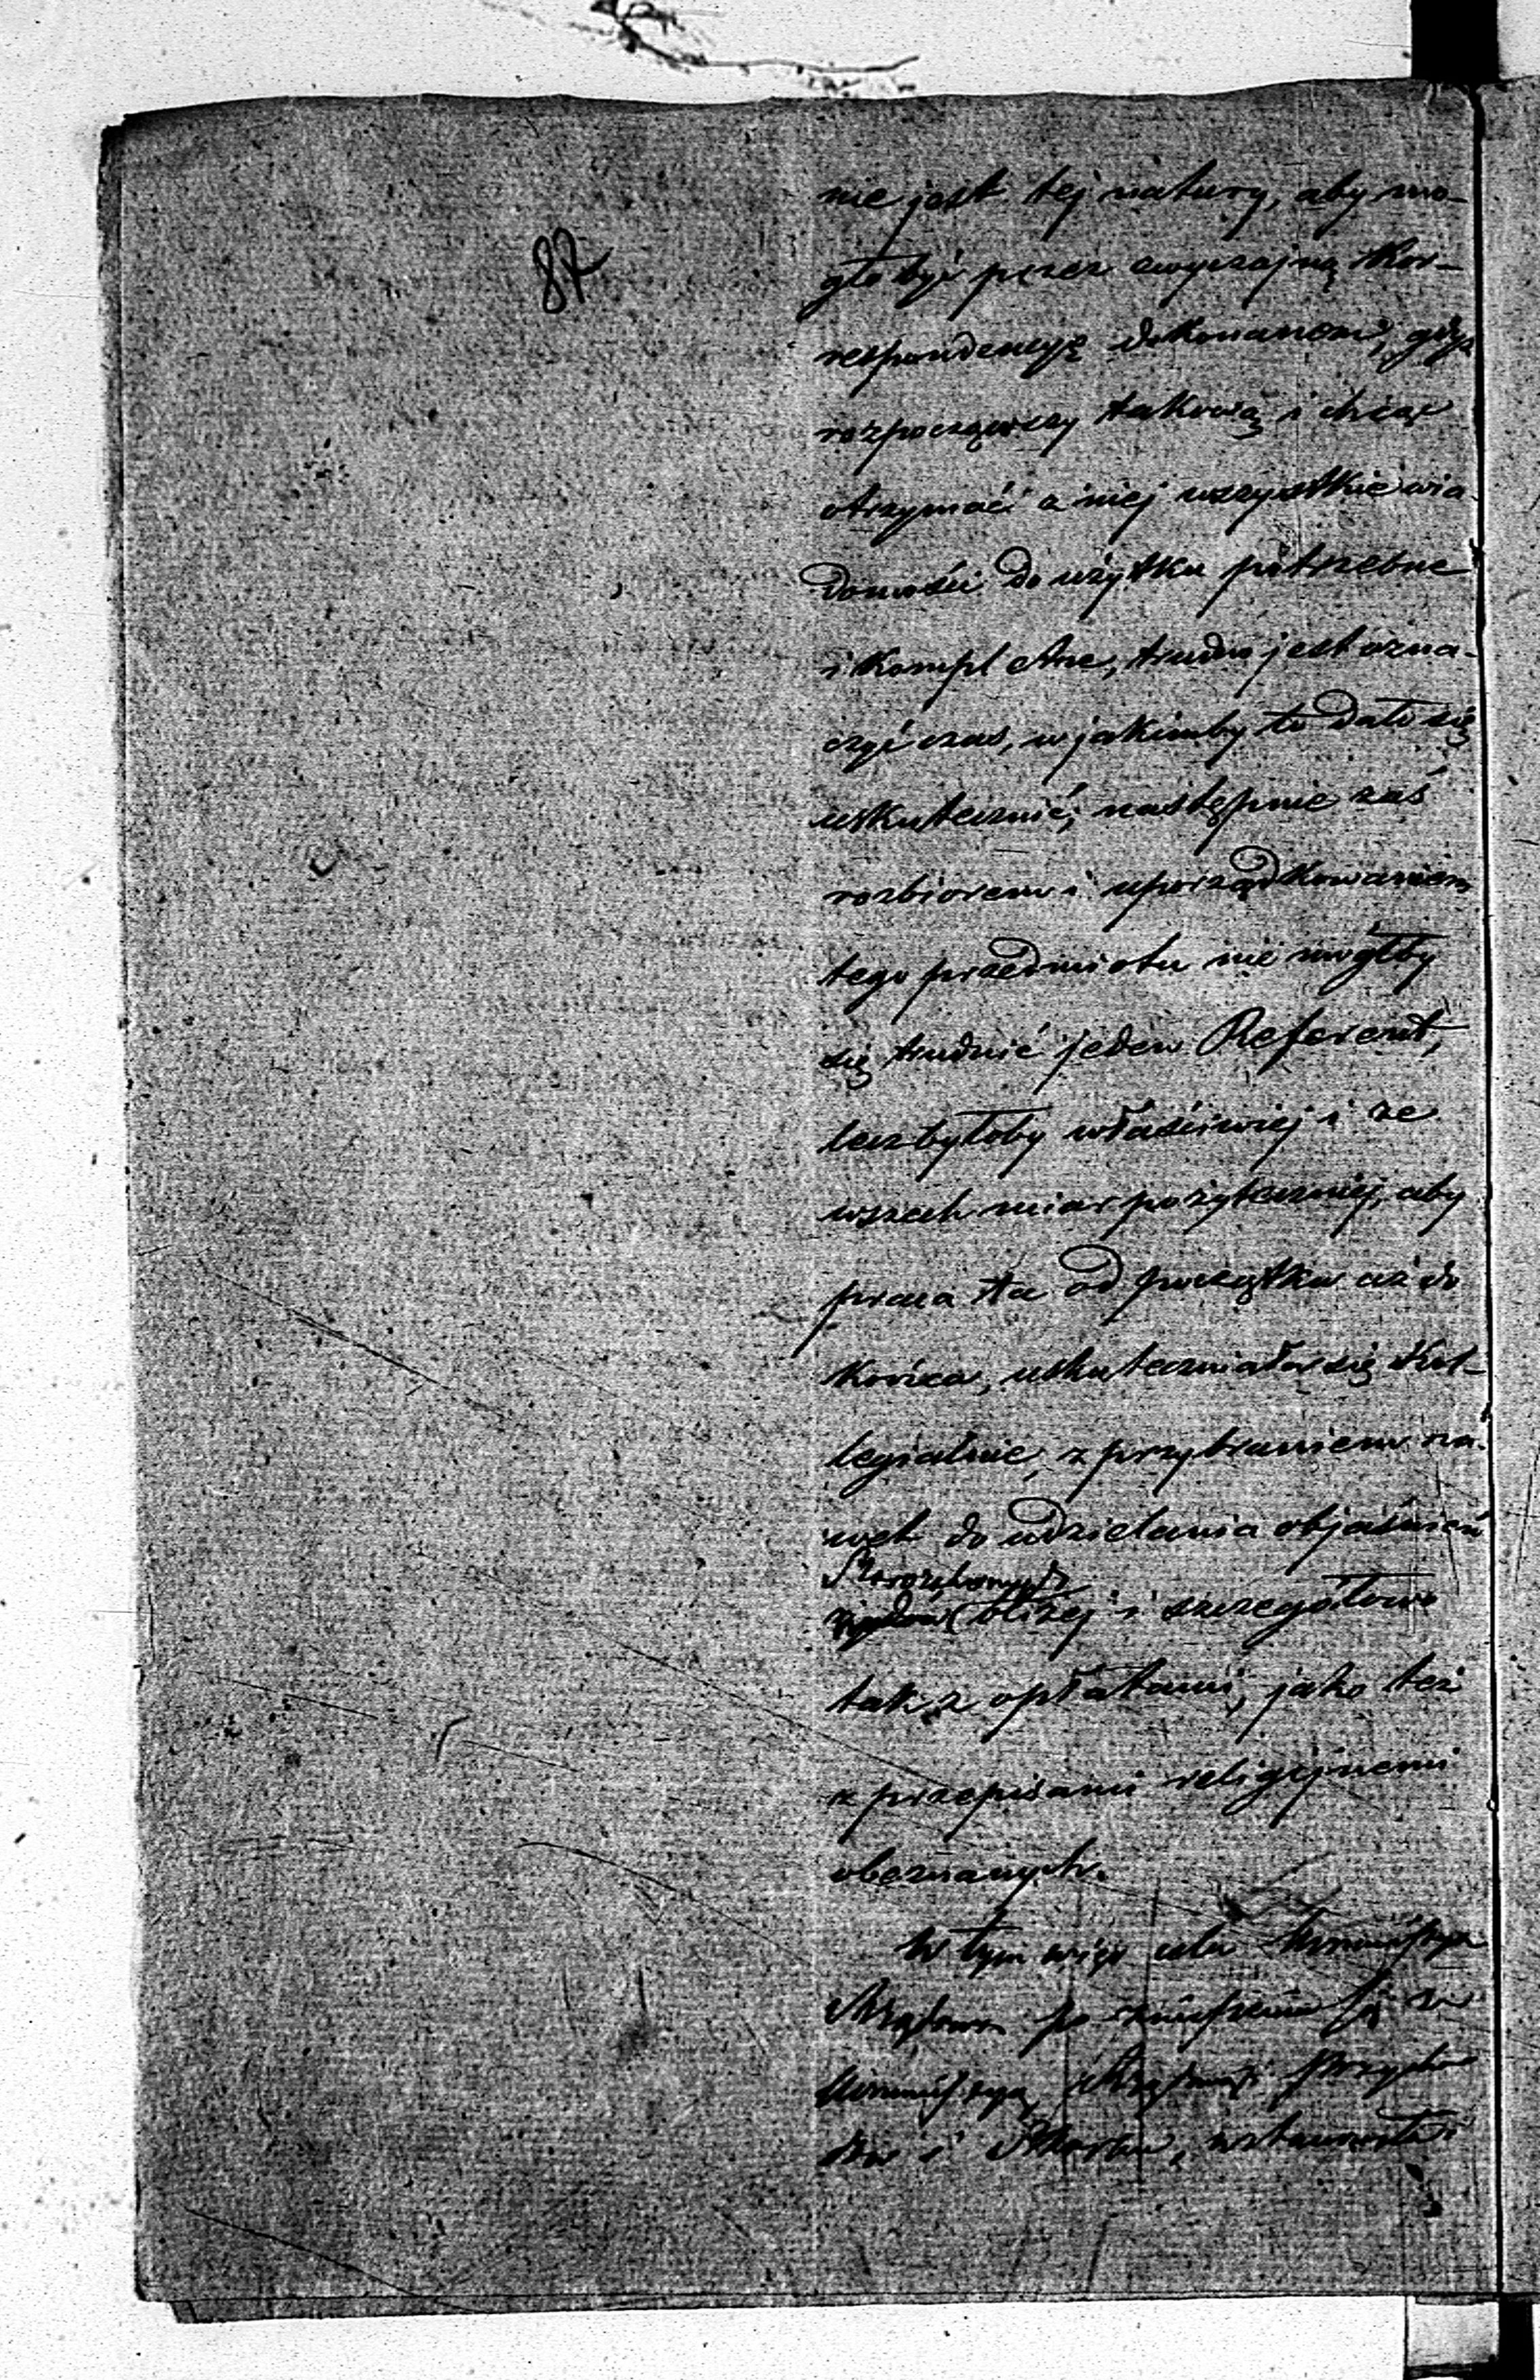 87
nie jest tej natury, aby mo-
gło być przez zwyczajną Kor-
respondencyę dokonanem, gdyż
rozpocząwszy takową i chcąc
otrzymać z niej wszystkie wia-
domości do użytku potrzebne
i Kompletne, trudno jest ozna-
czyć czas, w jakimby to dało się
uskutecznić; następnie zaś
rozbiorem i uporządkowaniem
tego przedmiotu nie mógłby
się trudnić jeden Referent,
lecz byłoby właściwiej i ze
wszech miar pożyteczniej, aby
praca ta od początku aż do
Końca, uskuteczniała się Kol-
legialnie, z przybraniem na-
wet do udzielania objaśnień
Starozakonnych
żydów bliżej i szczegółowo
tak z opłatami, jako też
z przepisami religijnemi
obeznanych.
W tym więc celu Kommissya
Rządowa po zniesieniu się z
Kommissyą Rządową Przycho-
dów i Skarbu,